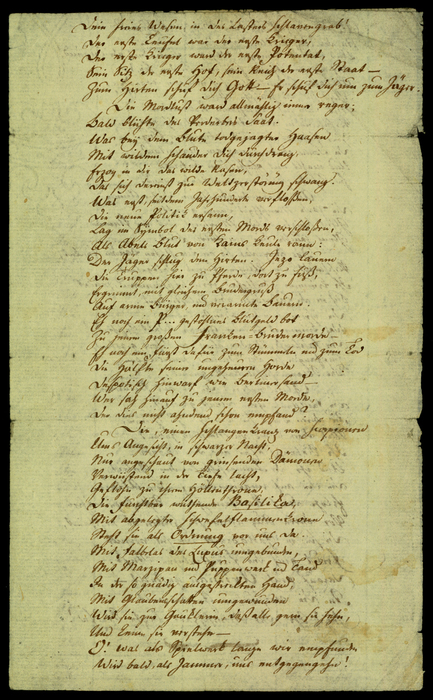 Dein freies Wesen, in des Lasters Schlangengrab!
Der erste Teufel war der erste Krieger,
Der erste Krieger ward der erste Potentat,
Sein Sitz der erste Hof, sein Knecht der erste Staat —
Zum Hirten schuf Dich Gott — Er schuf Dich um zum Jäger.
Die Mordlust ward allmählig immer reger;
Bald blühte des Verderbens Saat.
Was bey dem Blute todgejagter Haasen
Mit wildem Schauder Dich durchdrang,
Erzog in dir das wilde Rasen,
Das sich dereinst zur Weltzerstörung schwang.
Was erst, seitdem Jahrhunderte verflossen,
Die neue Politik ersann,
Lag im Symbol des ersten Mords verschlossen,
Als Abels Blut von Kains Keule rann:
Der Jäger schlug den Hirten. Jezo lauern
Die Truppen hier zu Pferde, dort zu Fuß,
Ergrimmt, mit gleichem Brudergruß
Auf arme Bürger und verarmte Bauern.
Eh noch ein P... gestohlnes Blutgeld bot
Zu jenem großen Franken-Brudermorde —
Eh noch ein Fürst dafür zum Stummeln und zum Tod
Die Hälfte seiner ungeheuren Horde
Despotisch hinwarf wie Berlinersand —
Wer sah hinauf zu jenem ersten Morde,
Der dies nicht ahndend schon empfand?
Die, einen Schlangenkranz von Skorpionen
Ums Angesicht, in schwarzer Nacht,
Nur angeschaut von grinsenden Dämonen
Verwüstend in der Tiefe lacht,
Geflohn zu ihrem Höllenthrone,
Die furchtbar wüthende Basiliska,
Mit abgelegter Schwefelflammenkrone
Steht sie als Ordnung vor uns da.
Mit Falbelas des Luxus umgebunden,
Mit Marzipan und Puppenwerk und Tand
In der so gnädig ausgestreckten Hand,
Mit Glaubensschatten umgewunden
Wird sie zur Gauklerin, daß alle gern sie sehn,
Und keine sie verstehn —
O! was als Spielwerk lange wir empfunden
Wird bald, als Jammer, uns entgegengehn!